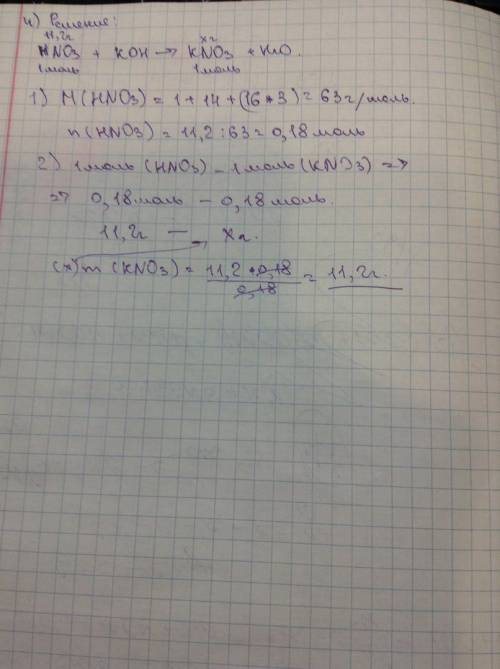 4) Решение:
11,2г хг
HNO3 + KOH → KNO3 + H2O.
1моль 1моль
1) M(HNO3) = 1 + 14 + (16*3) = 63г/моль.
n(HNO3) = 11,2 : 63 = 0,18 моль
2) 1моль (HNO3) - 1моль (KNO3) =>
=> 0,18моль - 0,18 моль.
11,2г — хг.
(х) m (KNO3) = 11,2 * 0,18 / 0,18 = 11,2г.